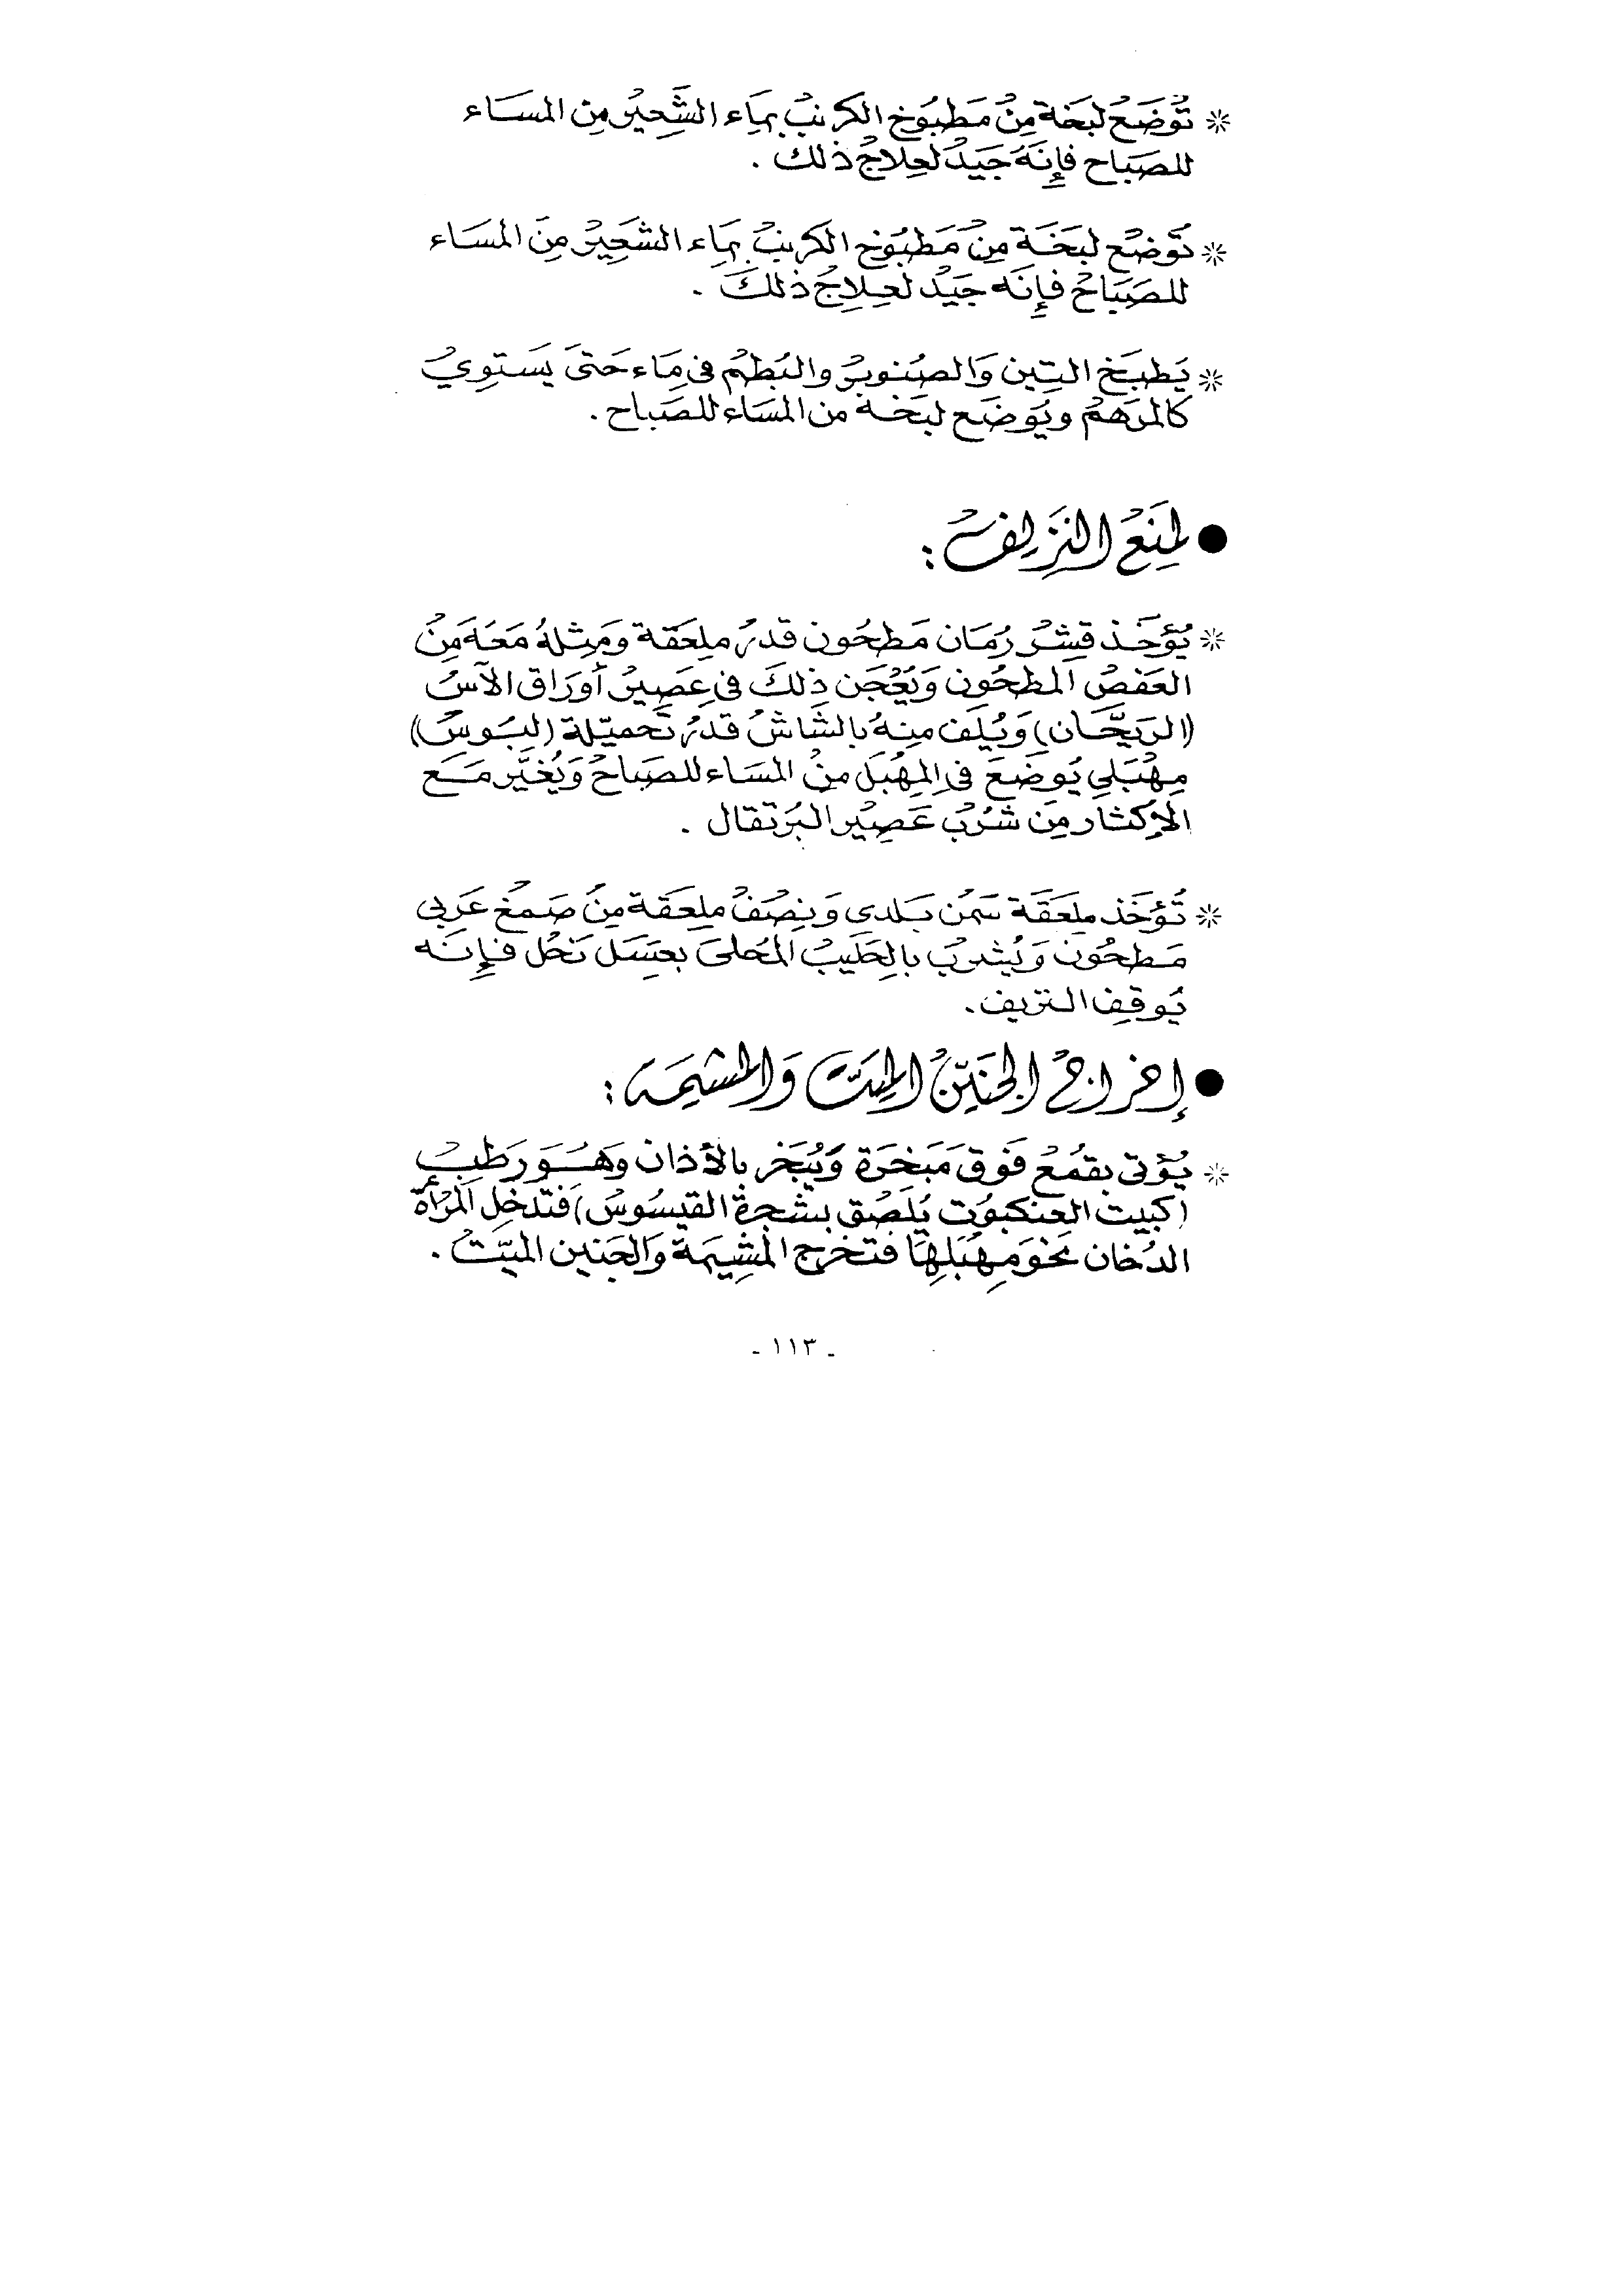 * تُوضَعُ لبخة مِنْ مَطبُوخ الكرنبُ بمَاء الشَّعِيرُ مِن المسَاء
للصَبَاح فإِنَهُ جَيَدُ لعِلاجُ ذلك .
* تُوضعُ لبَخَة مِنُ مَطبُوخ الكَرنبُ بمَاء الشعَيِرُ مِنَ المسَاء
للصَبَاحُ فإِنَه جَيَدُ لعِلاجُ ذلكَ .
* يَطبَخ التِين وَالصُنوبرُ والبُطمُ فى مَاء حَتىَ يَستوِيُ
كالمرَهمُ ويُوَضَع لبَخة من المسَاء للصَباح .
● لمِنَعُ النَزِيفُ :
* يُؤخَذ قشِرُ رُمَان مَطحُون قدرُ ملِعَقة وَمَثِلهُ مَعَهَ مِنُ
العَفصُ المطحُون وَيُعُجَن ذِلكَ فى عِصَيِرُ أورَاق الآسُ
(الرَيحَّان) وَيُلَف منِهُ بالشَاشُ قدرُ تَحميّلة (لبُوسُ)
مِهُبَلي يُوضَعَ فى المِهُبَلَ منُ المسَاء للصَباحُ وَيُغيَّر مَع
الإكثار مِنَ شُربُ عَصِيُر البُرتقال .
* تُؤخَذ ملِعَقَة سَمُن بَلدي وَنِصُفُ ملِعَقة مِنُ صَمغُ عَربي
مَطحُون وَيُشربُ بالحَليَبُ المحُلىَ بعسَل نَحُل فإِنَه
يُوقفِ النزيف .
● إخراجُ الجنَيّنُ الميَتّ وَالمشيمَة :
* يُؤتى بقمُعُ فوَق مَبَخرَة وَيُبَخر بالأذان وَهُوَ رَطِبُ
(كبيت العنكبوُت يُلصُق بشَجرة القيسُوسُ) فتدخِل المرَأة
الدُخان نحَوَ مِهُبَلِهَا فتخرج المشِيَمة وَالجَنين الميّتُ .
- ١١٣ -